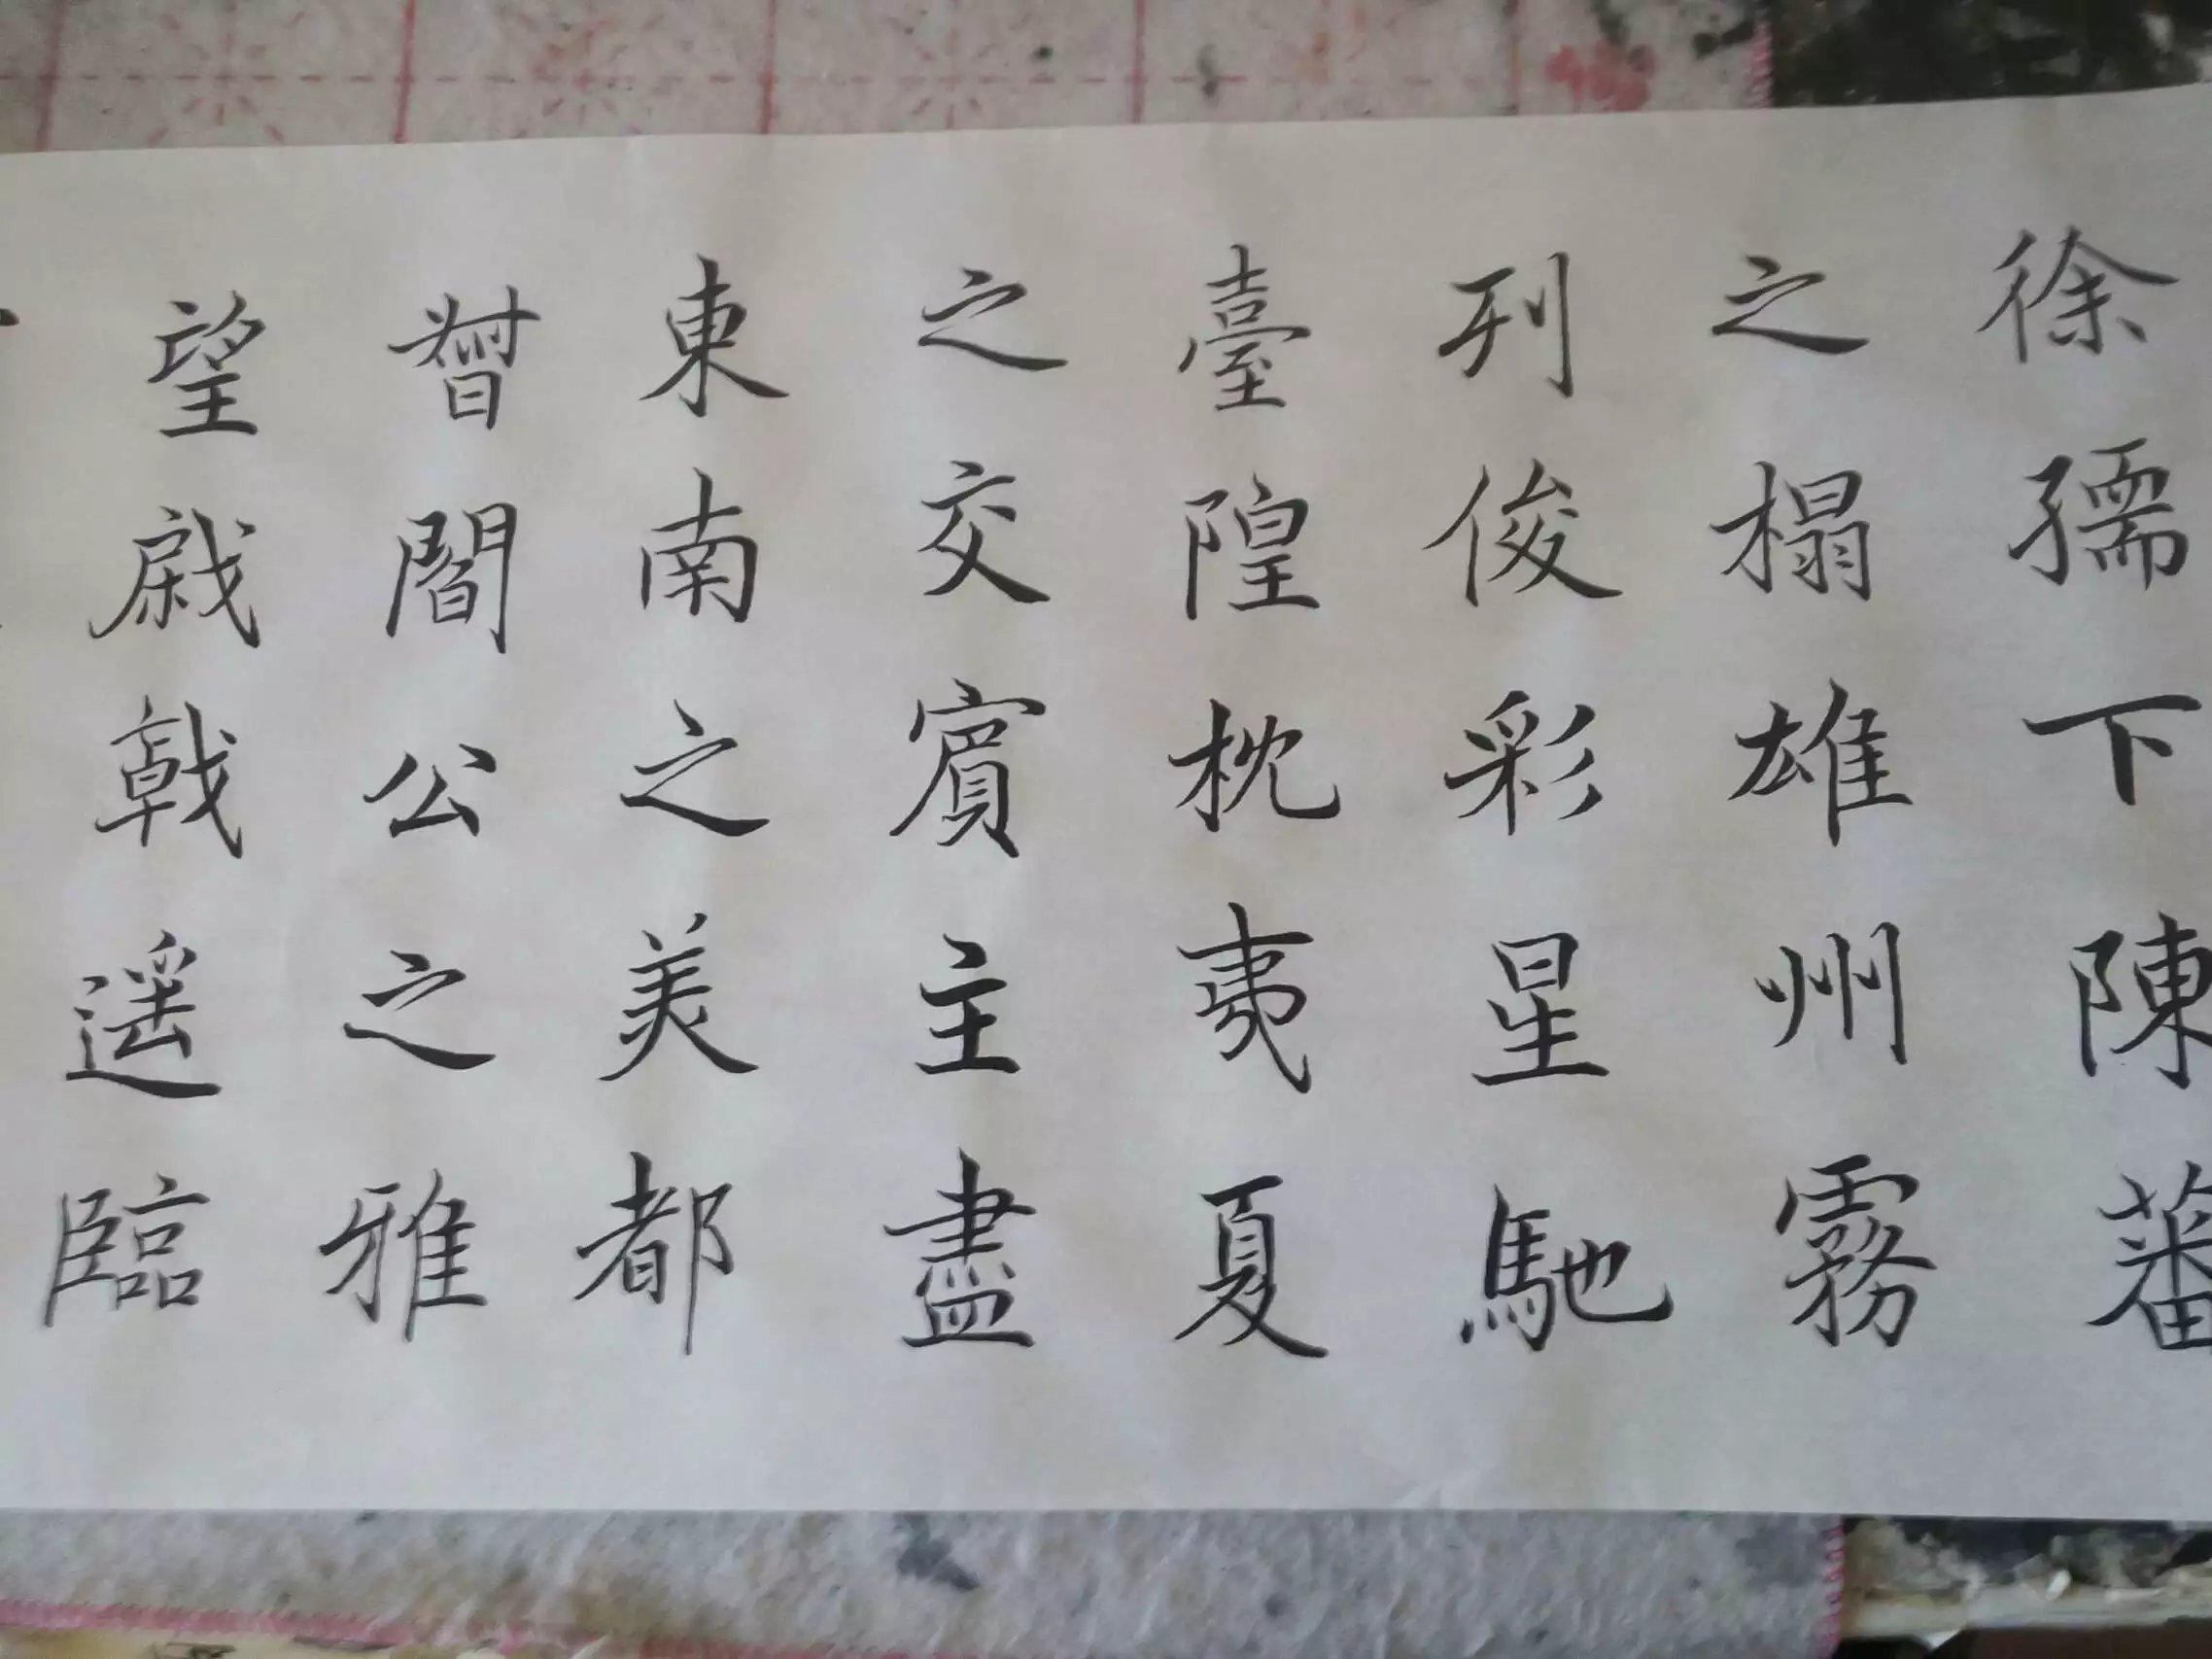 徐孺下陳蕃
之榻雄州霧
列俊彩星馳
臺隍枕夷夏
之交賓主盡
東南之美都
督閻公之雅
望戚戟遥臨